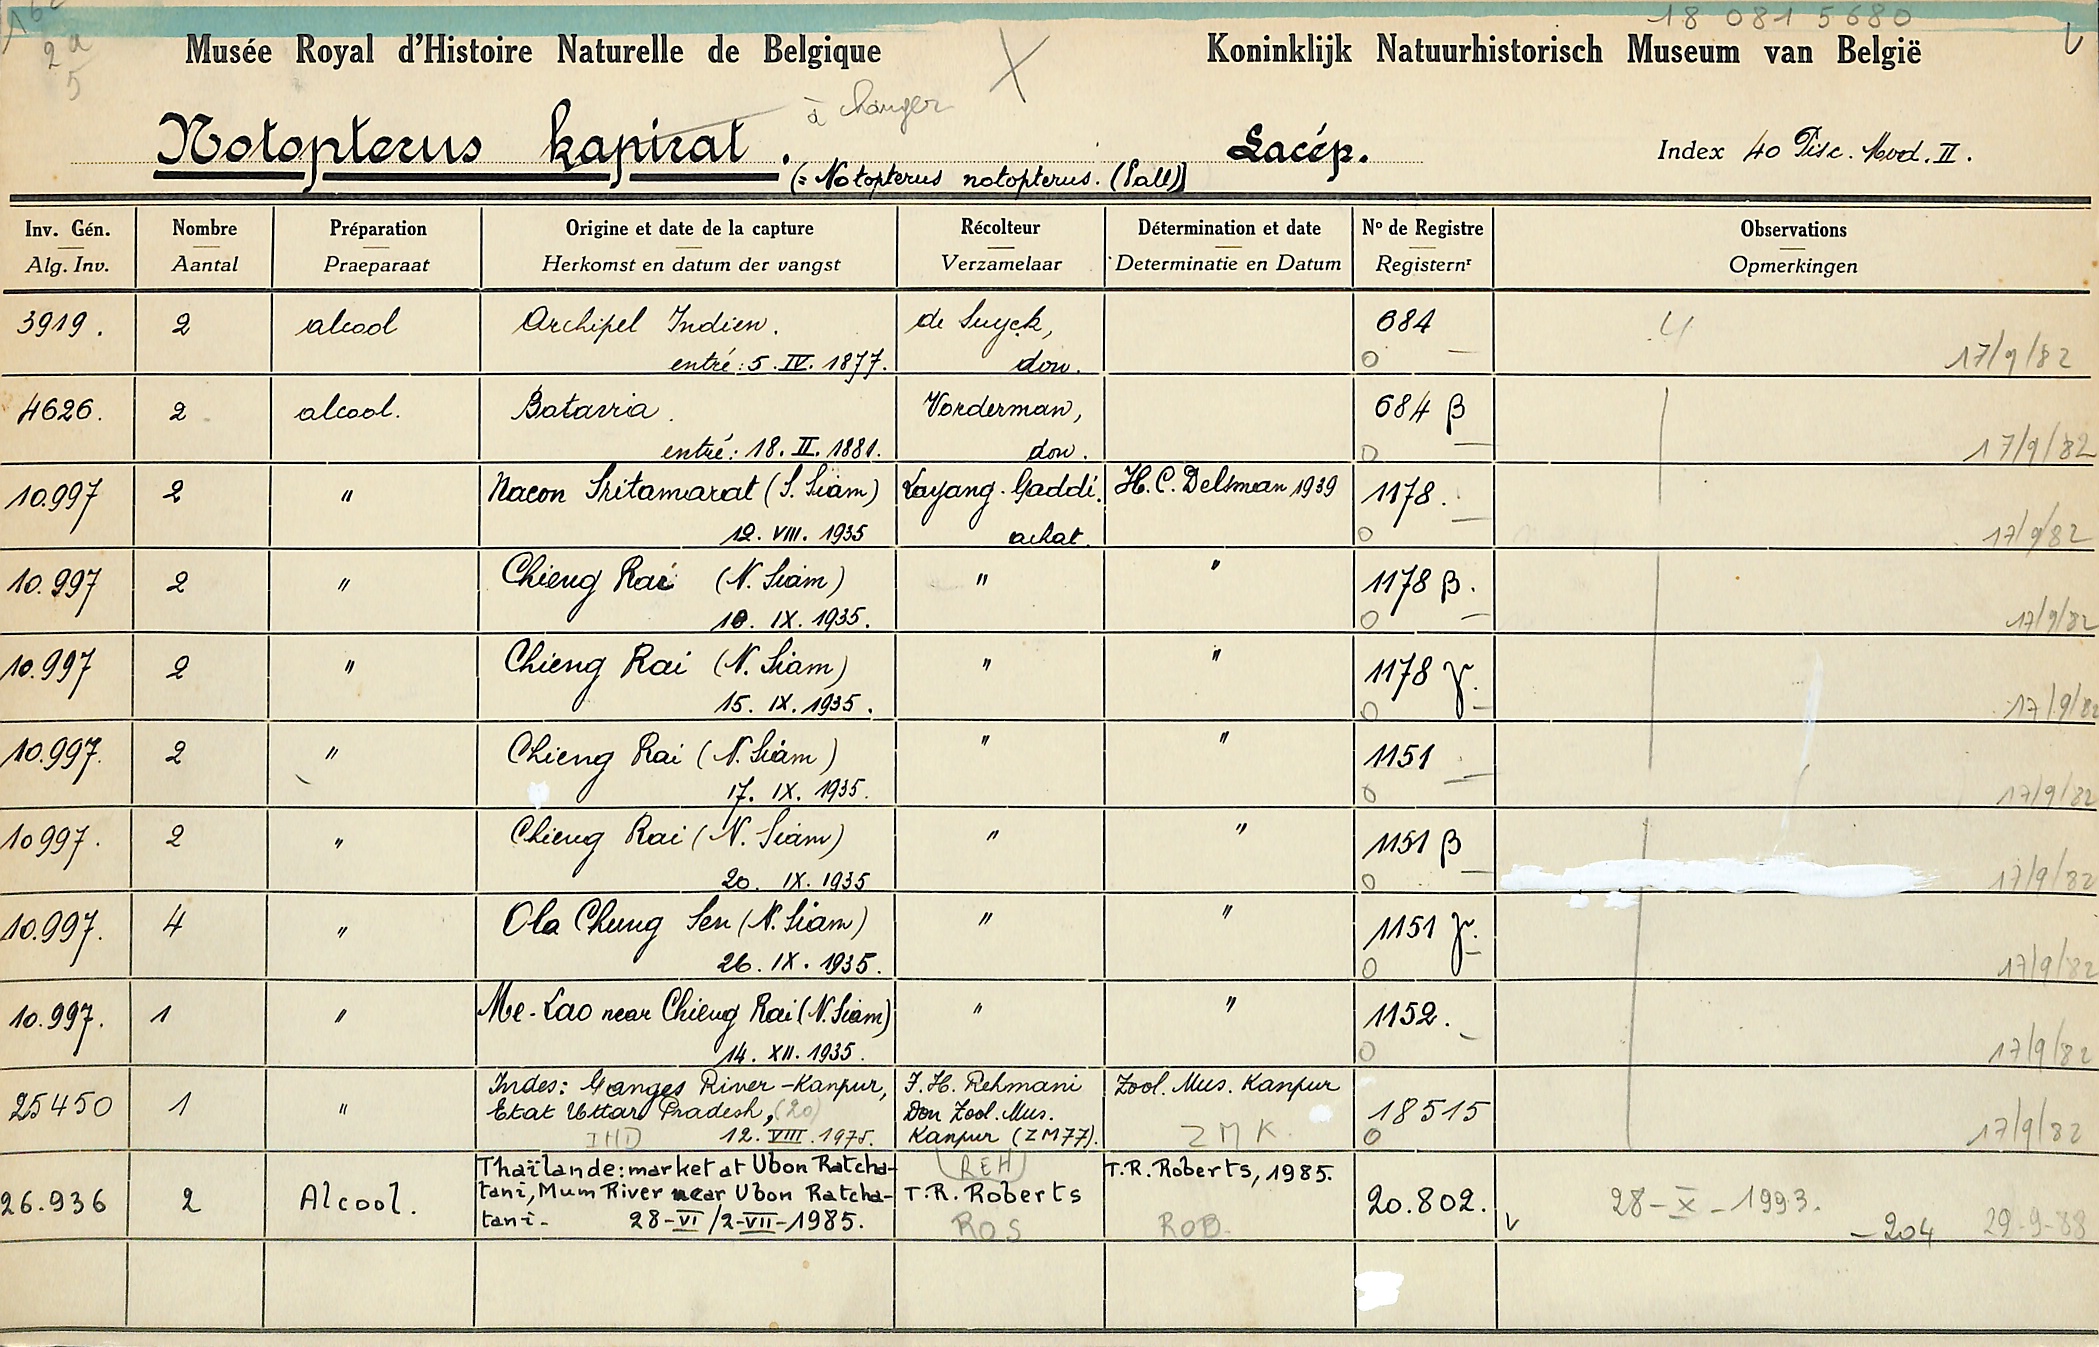 18 081 5680
2a
5
Musée Royal d'Histoire Naturelle de Belgique
Koninklijk Natuurhistorisch Museum van België
à changer
Notopterus kapirat.
Lacép.
Index 40 Pisc. Mod. II.
(= Notopterus notopterus. (Pall))
Inv. Gén. Nombre Préparation Origine et date de la capture Récolteur Détermination et date Nº de Registre Observations
Alg. Inv. Aantal Praeparaat Herkomst en datum der vangst Verzamelaar Determinatie en Datum Registernr Opmerkingen
3919. 2 alcool Archipel Indien. de Suyck, 684
entré: 5. IV. 1877. don. 0 17/9/82
4626. 2 alcool. Batavia. Vorderman, 684 β
entré: 18. II. 1881. don. 0 17/9/82
10.997 2 " Nacon Sritamarat (S. Siam) Layang-Gaddi. H.C. Delsman 1939 1178.
12. VIII. 1935 achat. 0 17/9/82
10.997 2 " Chieng Rai (N. Siam) " " 1178 β.
10. IX. 1935. 0 17/9/82
10.997 2 " Chieng Rai (N. Siam) " " 1178 γ.
15. IX. 1935. 0 17/9/82
10.997. 2 " Chieng Rai (N. Siam) " " 1151
17. IX. 1935. 0 17/9/82
10997. 2 " Chieng Rai (N. Siam) " " 1151 β
20. IX. 1935 0 17/9/82
10.997. 4 " Ola Chung Sen (N. Siam) " " 1151 γ.
26. IX. 1935. 0 17/9/82
10.997. 1 " Me-Lao near Chieng Rai (N. Siam) " " 1152.
14. XII. 1935. 0 17/9/82
Indes: Ganges River - Kanpur, J.H. Rehmani Zool. Mus. Kanpur
25450 1 " Etat Uttar Pradesh, (20) Don Zool. Mus. 18515
IHD 12. VIII. 1975. Kanpur (ZM77). ZMK. 0 17/9/82
Thaïlande: market at Ubon Ratcha- REH T.R. Roberts, 1985.
26.936 2 Alcool. tani, Mum River near Ubon Ratcha- T.R. Roberts 20.802. 28-X-1993.
tani- 28-VI/2-VII-1985. ROS ROB. -204 29-9-88